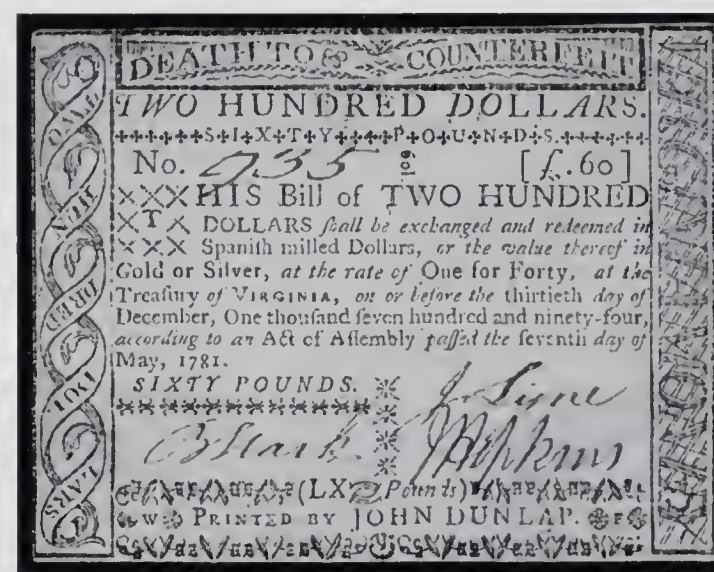 DEATH TO COUNTERFEIT
TWO HUNDRED DOLLARS.
S+I+X+T+Y P+O+U+N+D+S.
No. 935 [£.60]
XXXHIS Bill of TWO HUNDRED
XTX DOLLARS ſhall be exchanged and redeemed in
XXX Spaniſh milled Dollars, or the value thereof in
Gold or Silver, at the rate of One for Forty, at the
Treaſury of VIRGINIA, on or before the thirtieth day of
December, One thouſand ſeven hundred and ninety-four,
according to an Act of Aſſembly paſſed the ſeventh day of
May, 1781.
SIXTY POUNDS.
(LX Pounds)
W PRINTED BY JOHN DUNLAP. F
TWO
HUN
DRED
DOL
LARS